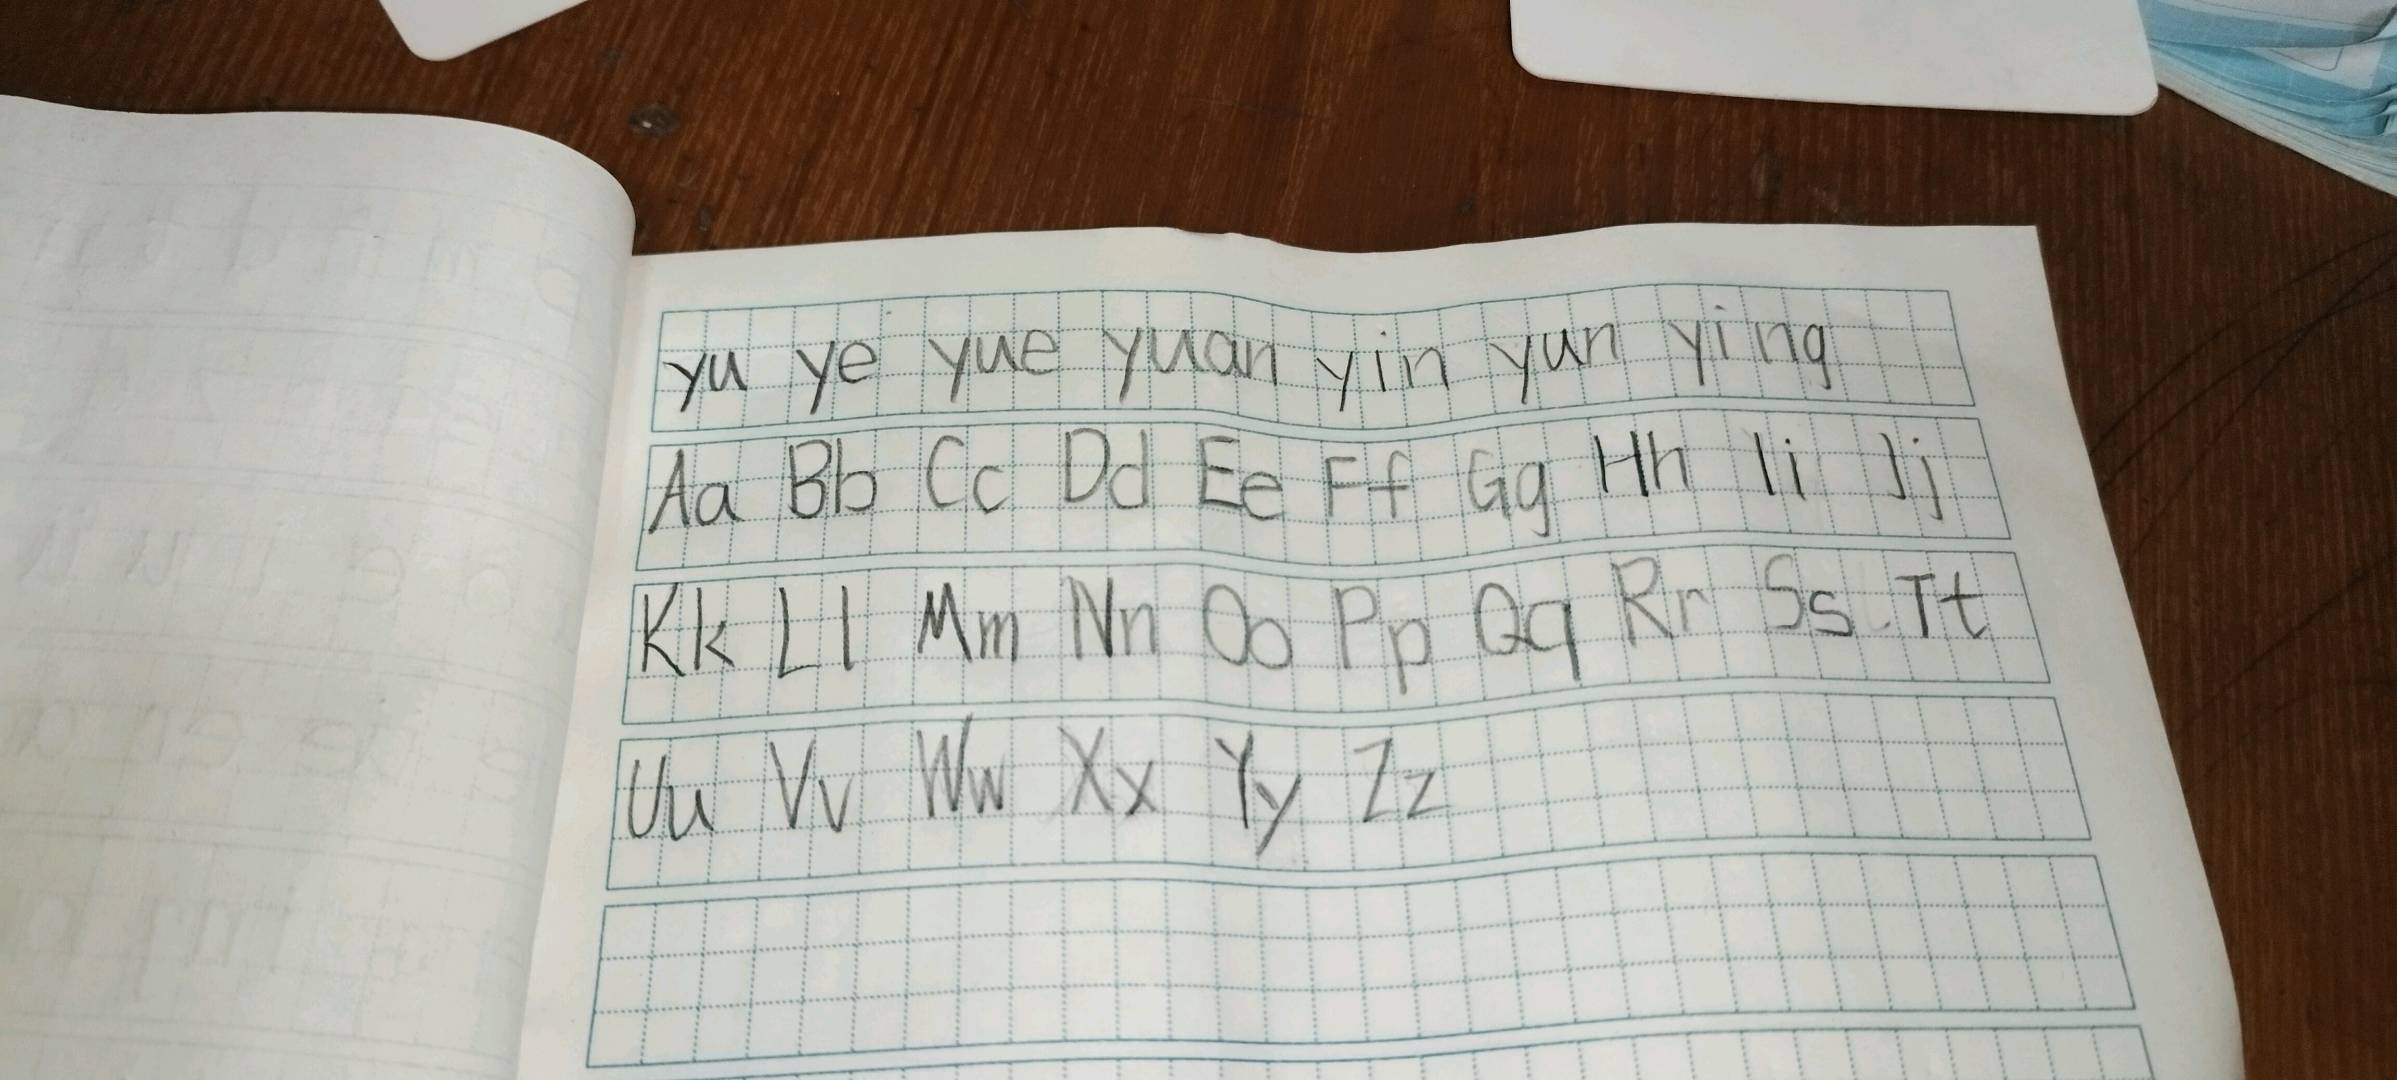 yu ye yue yuan yin yun ying
Aa Bb Cc Dd Ee Ff Gg Hh Ii Jj
Kk Ll Mm Nn Oo Pp Qq Rr Ss Tt
Uu Vv Ww Xx Yy Zz